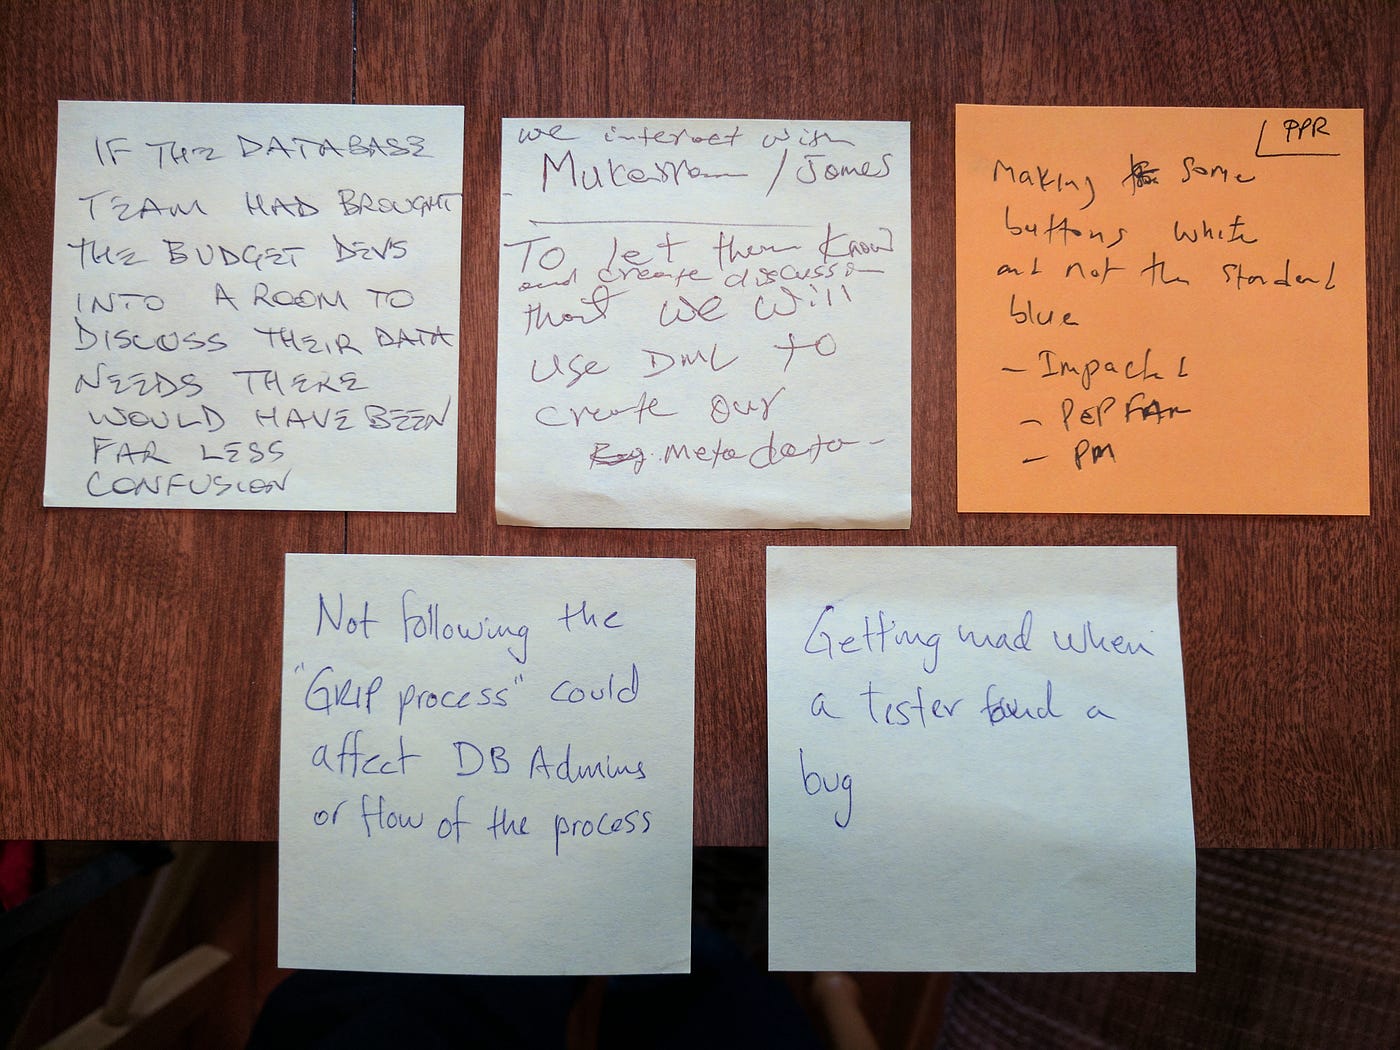 IF THE DATABASE
TEAM HAD BROUGHT
THE BUDGET DEVS
INTO A ROOM TO
DISCUSS THEIR DATA
NEEDS THERE
WOULD HAVE BEEN
FAR LESS
CONFUSION
we interact with
Mukarram / James
To let them know
and create discussion
that we will
use DML to
create our
metadata
PPR
Making some
buttons white
and not the standard
blue
- Impact
- PEPFAR
- PM
Not following the
"GRIP process" could
affect DB Admins
or flow of the process
Getting mad when
a tester found a
bug